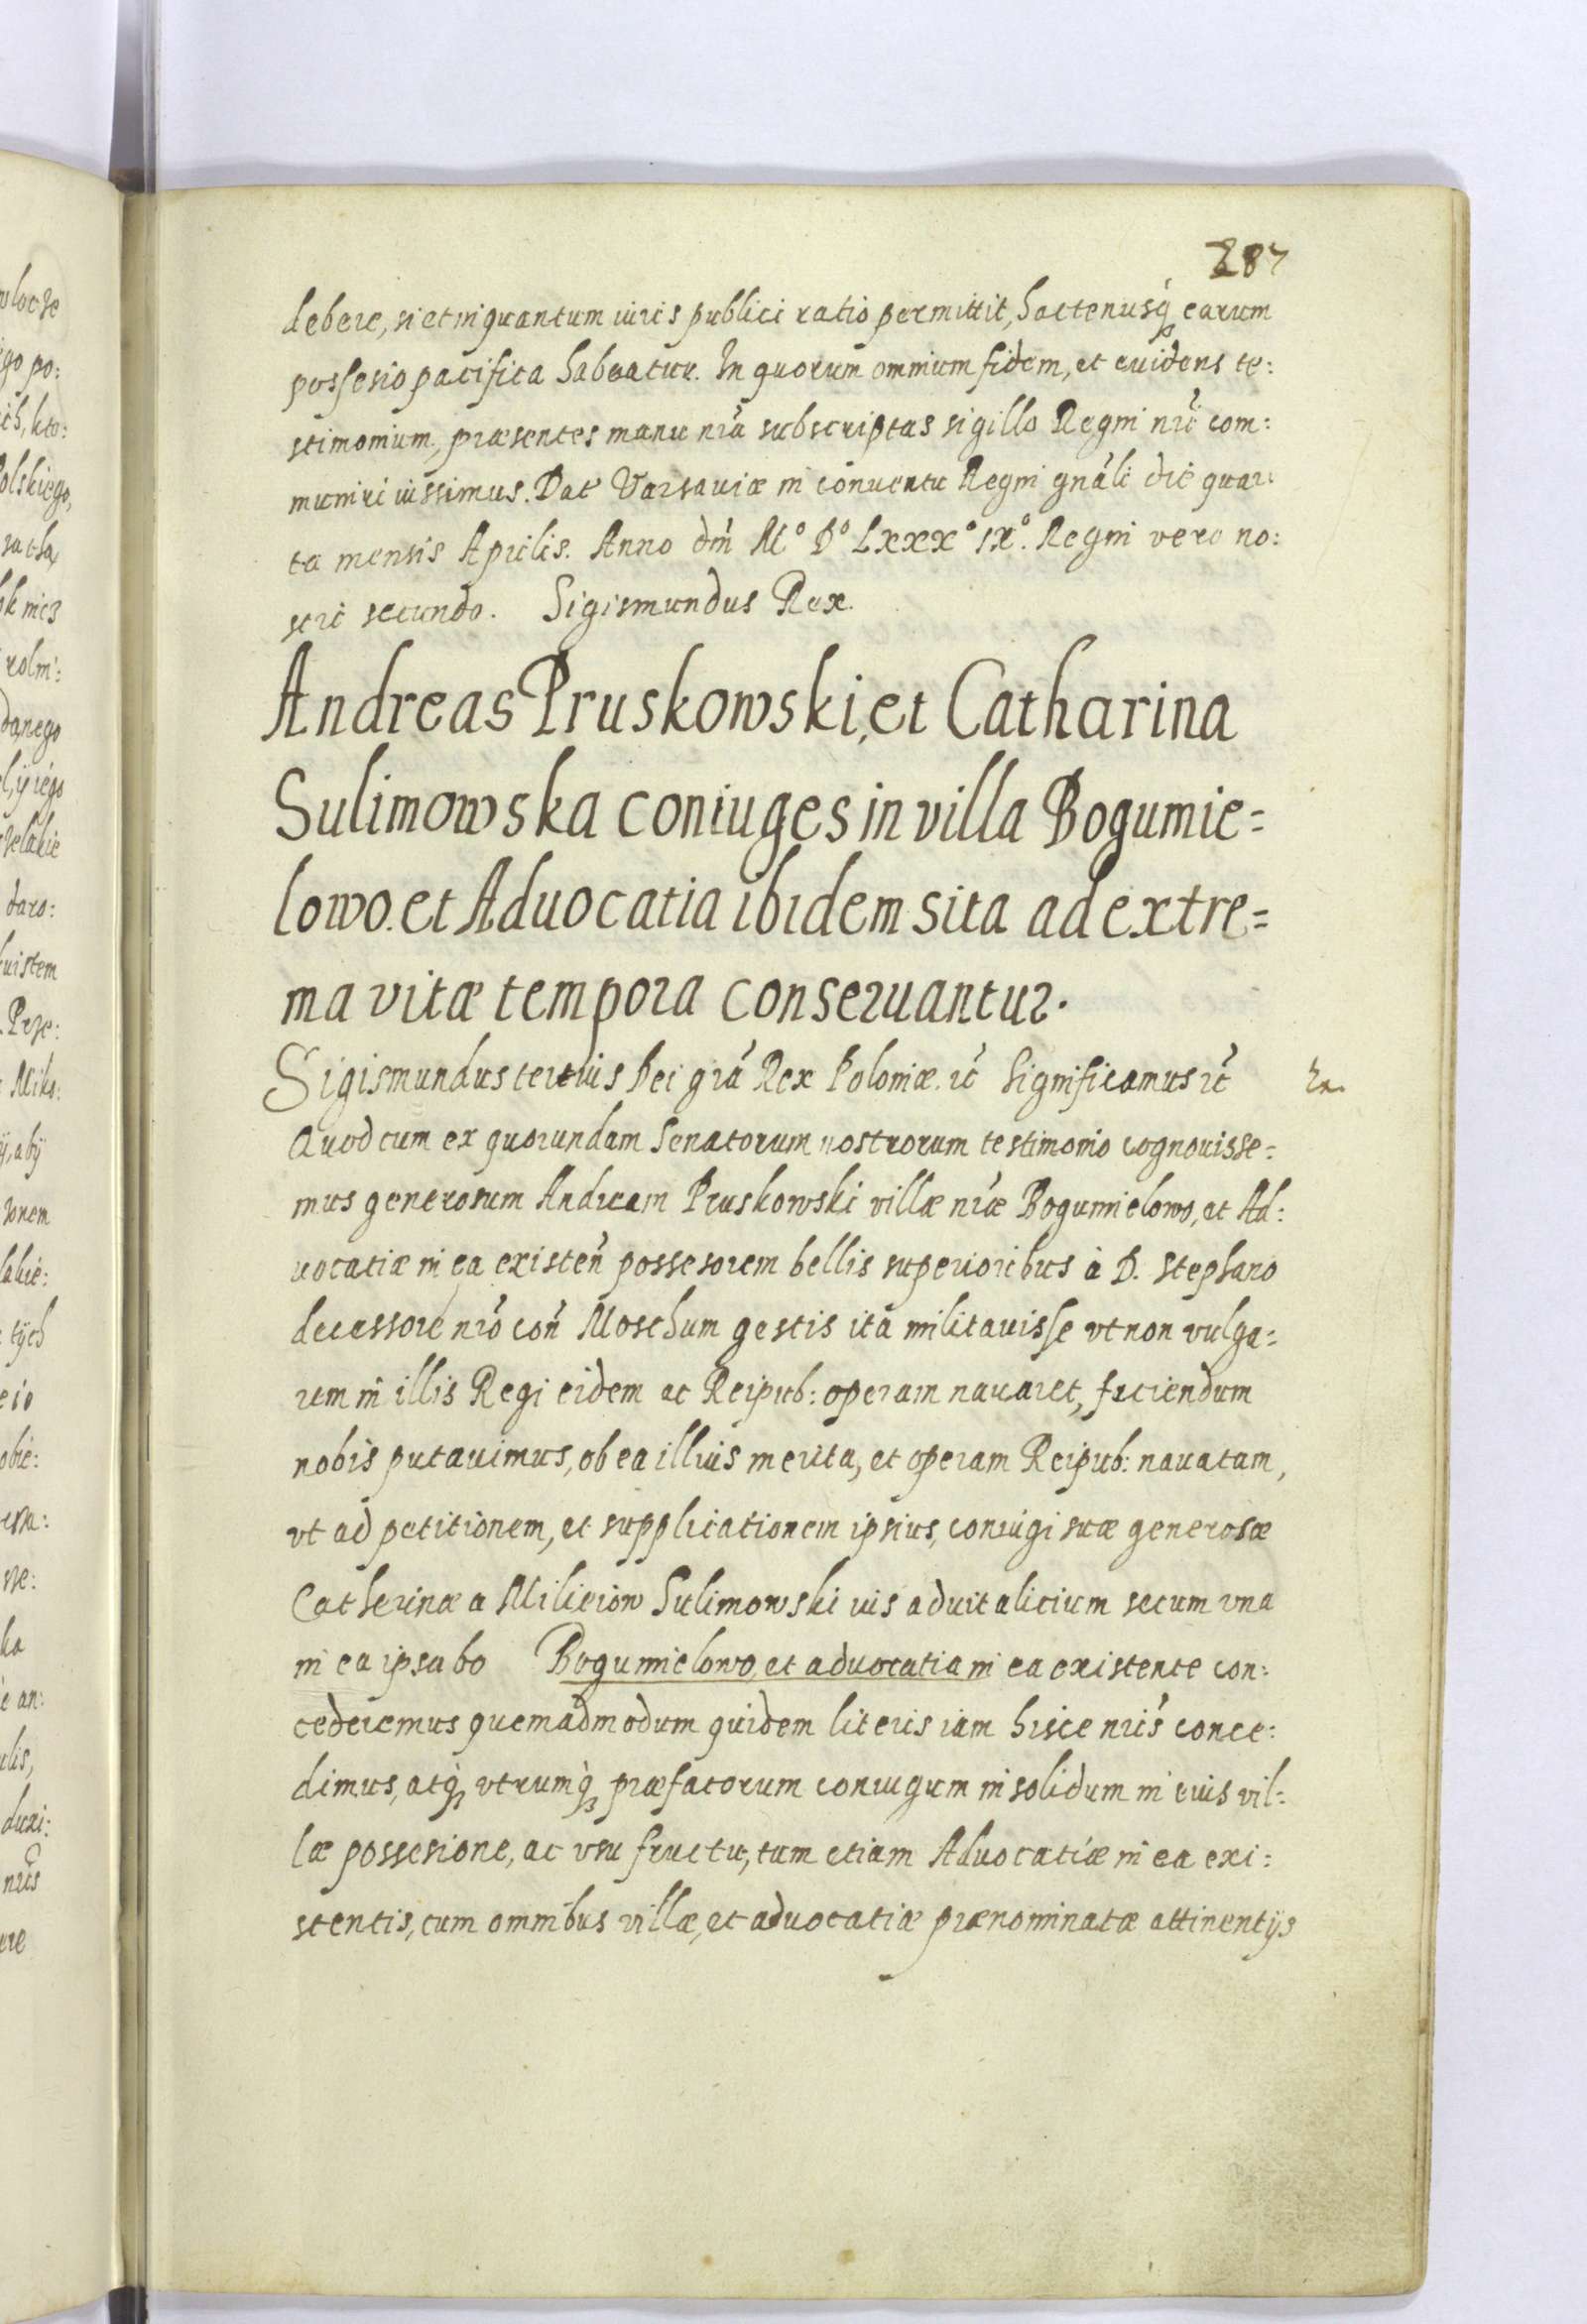 287
debere, si et in quantum iuris publici ratio permittit, hactenusq́ earum
possesio pacifica habeatur. In quorum omnium fidem, et euidens te:
stimonium, præsentes manu nrã subscriptas sigillo Regni nrĩ com:
muniri iussimus. Dat Varsauiæ in conuentu Regni gnãli die quar:
ta mensis Aprilis. Anno dñi M° D° Lxxx° ix°. Regni vero no:
stri secundo. Sigismundus Rex.
Andreas Pruskowski, et Catharina
Sulimowska coniuges in villa Bogumie=
lowo. et Aduocatia ibidem sita ad extre=
ma vitæ tempora conseruantur.
Sigismundus tertius Dei grã Rex Poloniæ. rc̃ Significamus rc̃
Quod cum ex quorundam Senatorum nostrorum testimonio cognouisse=
mus generosum Andream Pruskowski villæ nræ Bogumielowo, et Ad:
uocatiæ in ea existeñ possesorem bellis superioribus à D. Stephano
decessore nrõ coñ Moschum gestis ita militauisse vt non vulga=
rem in illis Regi eidem ac Reipub: operam nauaret, faciendum
nobis putauimus, ob ea illius merita, et operam Reipub: nauatam,
vt ad petitionem, et supplicationem ipsius, coniugi suæ generosæ
Catherinæ a Milieiow Sulimowski ius aduitalicium secum vna
in ea ipsa bo Bogumielowo, et aduocatia in ea existente con:
cederemus quemadmodum quidem literis iam hisce nrĩs conce:
dimus, atq́ vtrumq́ præfatorum coniugum in solidum in eius vil:
læ possesione, ac vsu fructu, tum etiam Aduocatiæ in ea exi:
stentis, cum omnibus villæ, et aduocatiæ prænominatæ attinentijs